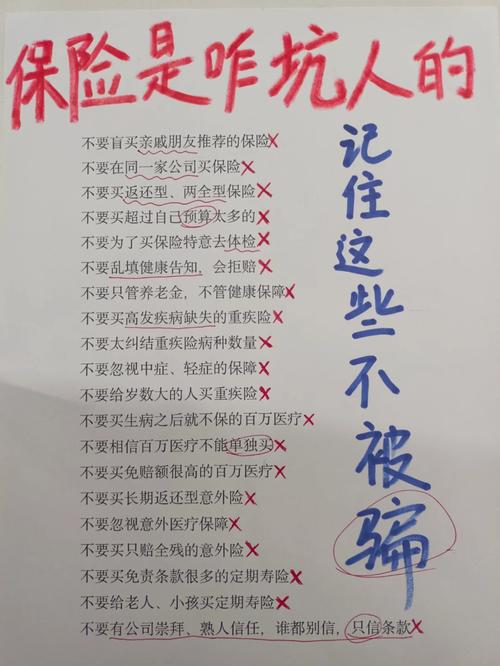 保险是咋坑人的
不要盲买亲戚朋友推荐的保险
不要在同一家公司买保险
不要买返还型、两全型保险
不要买超过自己预算太多的
不要为了买保险特意去体检
不要乱填健康告知，会拒赔
不要只管养老金，不管健康保障
不要买高发疾病缺失的重疾险
不要太纠结重疾险病种数量
不要忽视中症、轻症的保障
不要给岁数大的人买重疾险
不要买生病之后就不保的百万医疗
不要相信百万医疗不能单独买
不要买免赔额很高的百万医疗
不要买长期返还型意外险
不要忽视意外医疗保障
不要买只赔全残的意外险
不要买免责条款很多的定期寿险
不要给老人、小孩买定期寿险
不要有公司崇拜、熟人信任，谁都别信，只信条款
记住这些不被骗